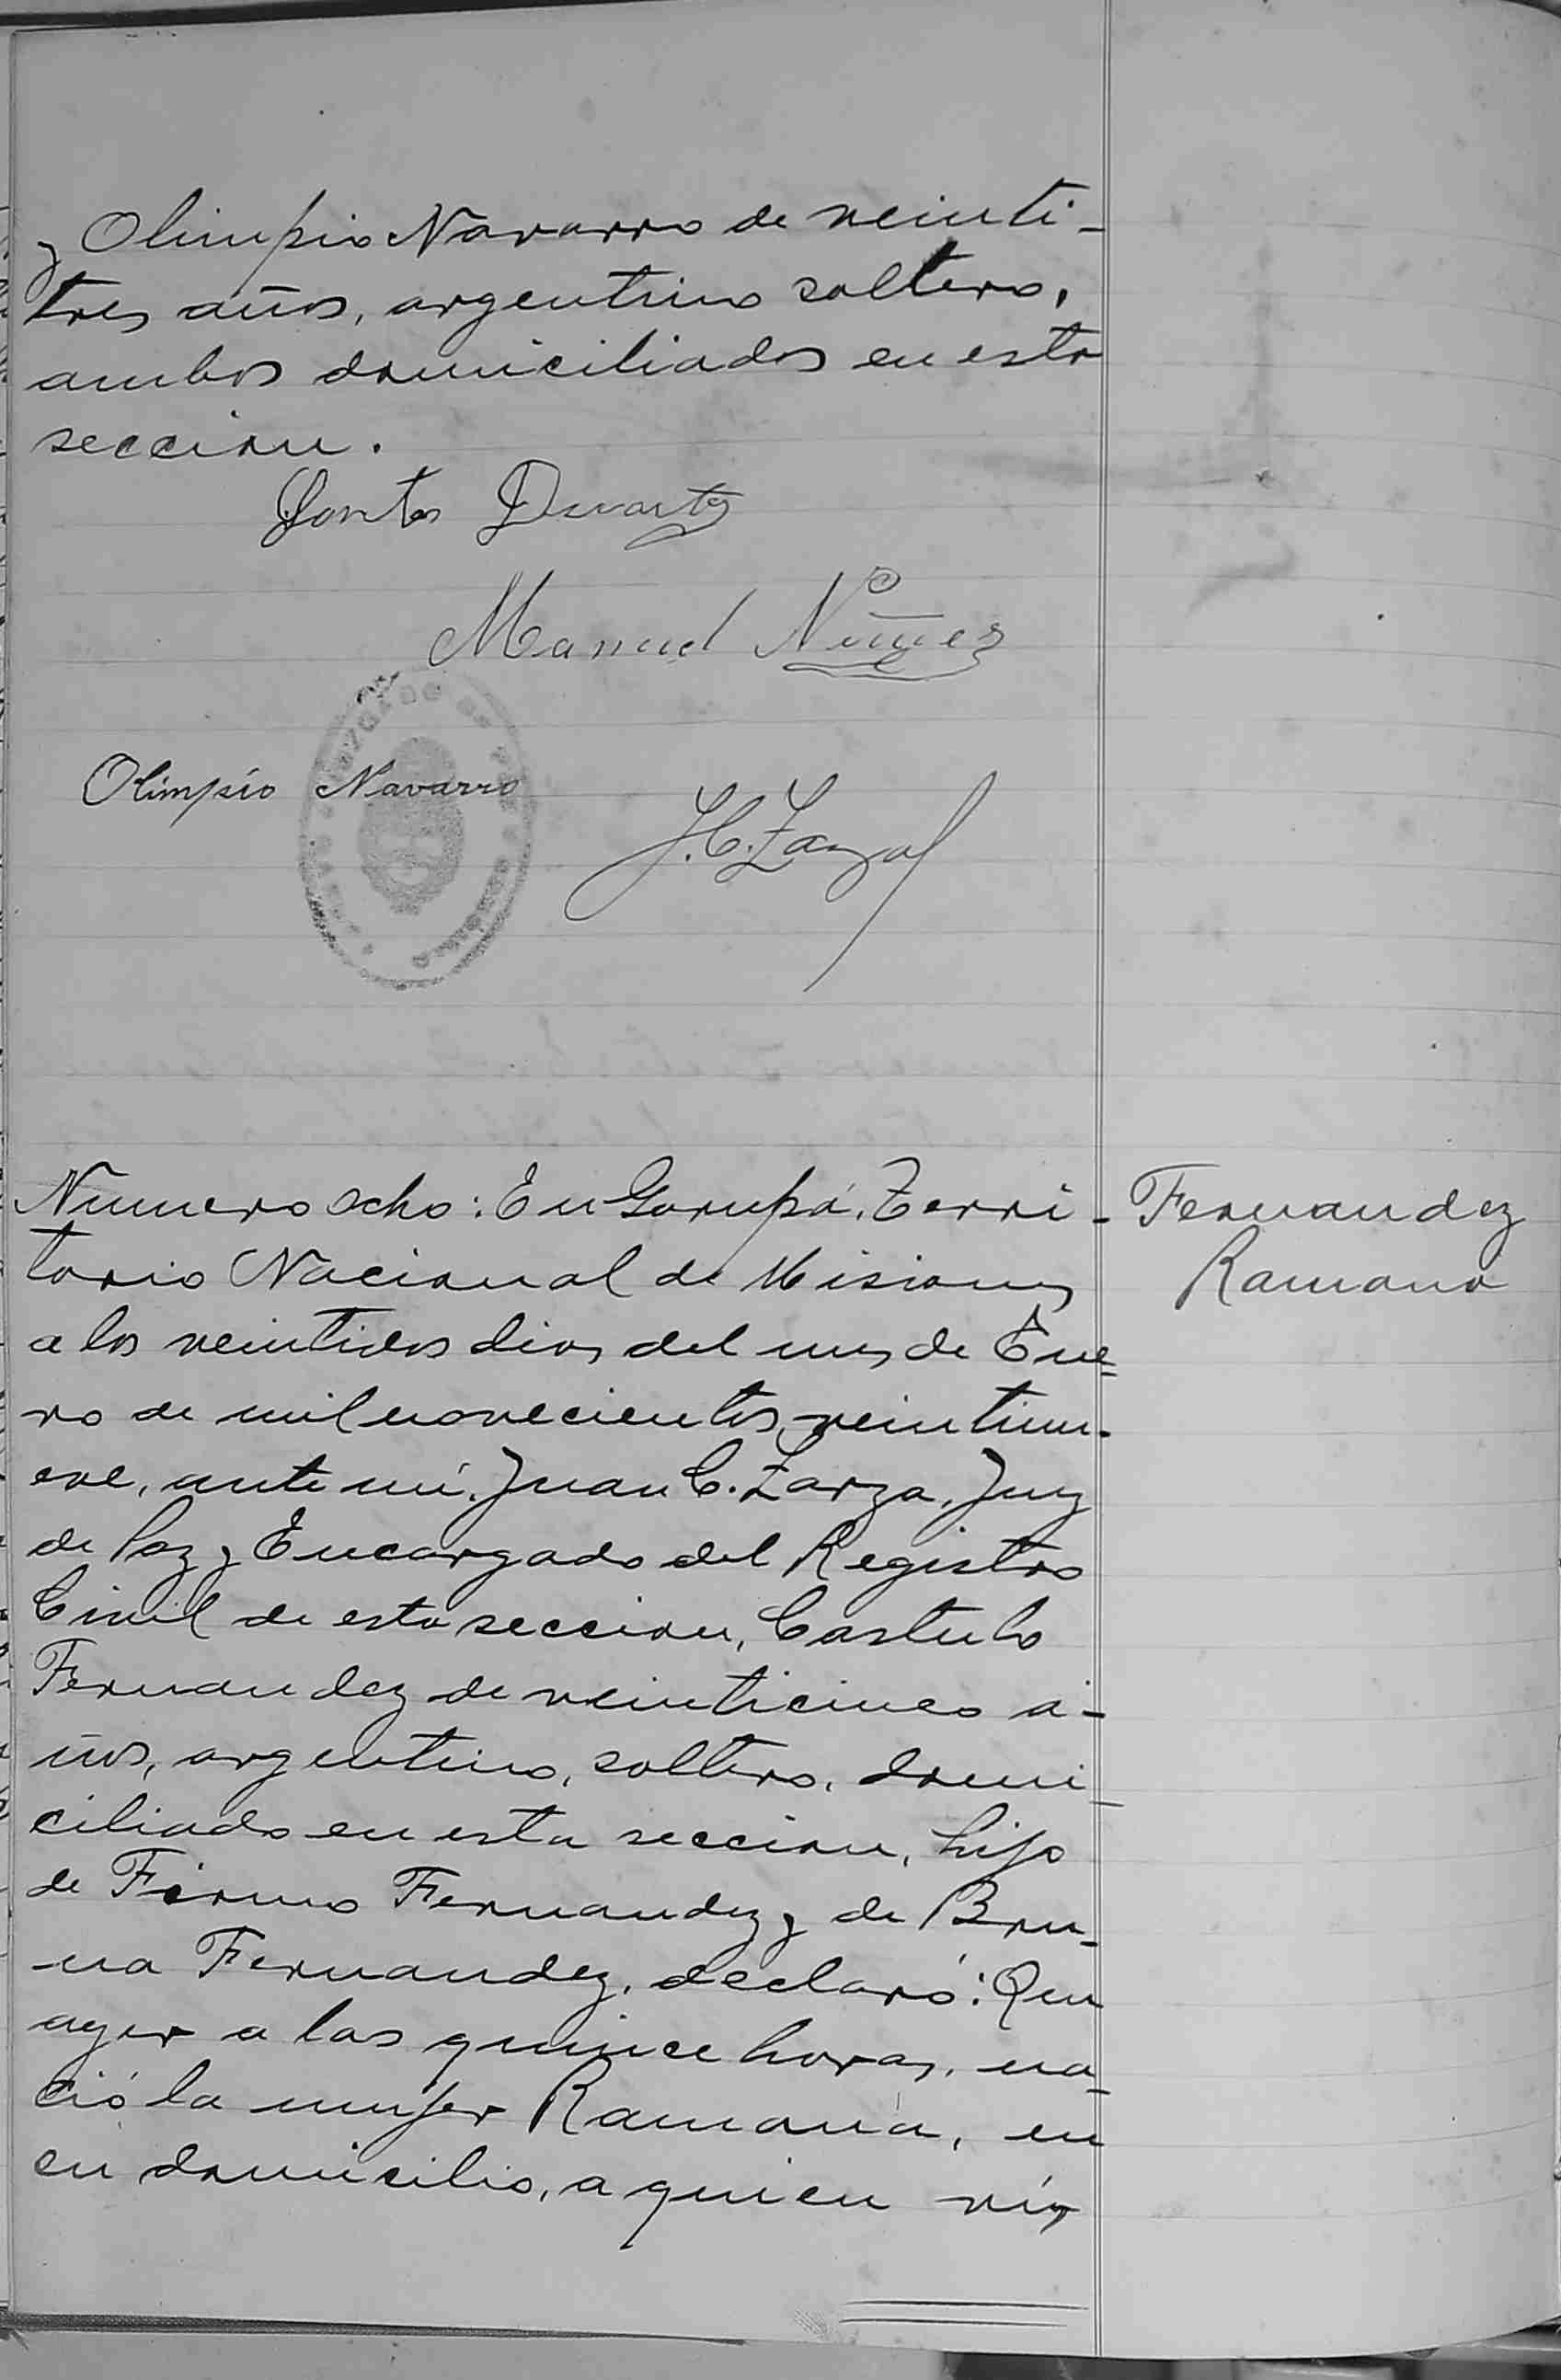 y Olimpio Navarro de veinti-
tres años, argentino soltero,
ambos domiciliados en esta
seccion.
Santos Duarte
Manuel Núñez
Olimpio Navarro
J. C. Zarza
Número ocho: En Garupá, Terri-
torio Nacional de Misiones
a los veintidos dias del mes de Ene-
ro de mil novecientos veintinu-
eve, ante mi, Juan C. Zarza, Juez
de Paz y Encargado del Registro
Civil de esta seccion, Castulo
Fernandez de veinticinco a-
ños, argentino, soltero, domi-
ciliado en esta seccion, hijo
de Firmo Fernandez y de Bru-
na Fernandez, declaró: Que
ayer a las quince horas, na-
ció la mujer Ramona, en
su domicilio, a quien vió,
Fernandez
Ramona